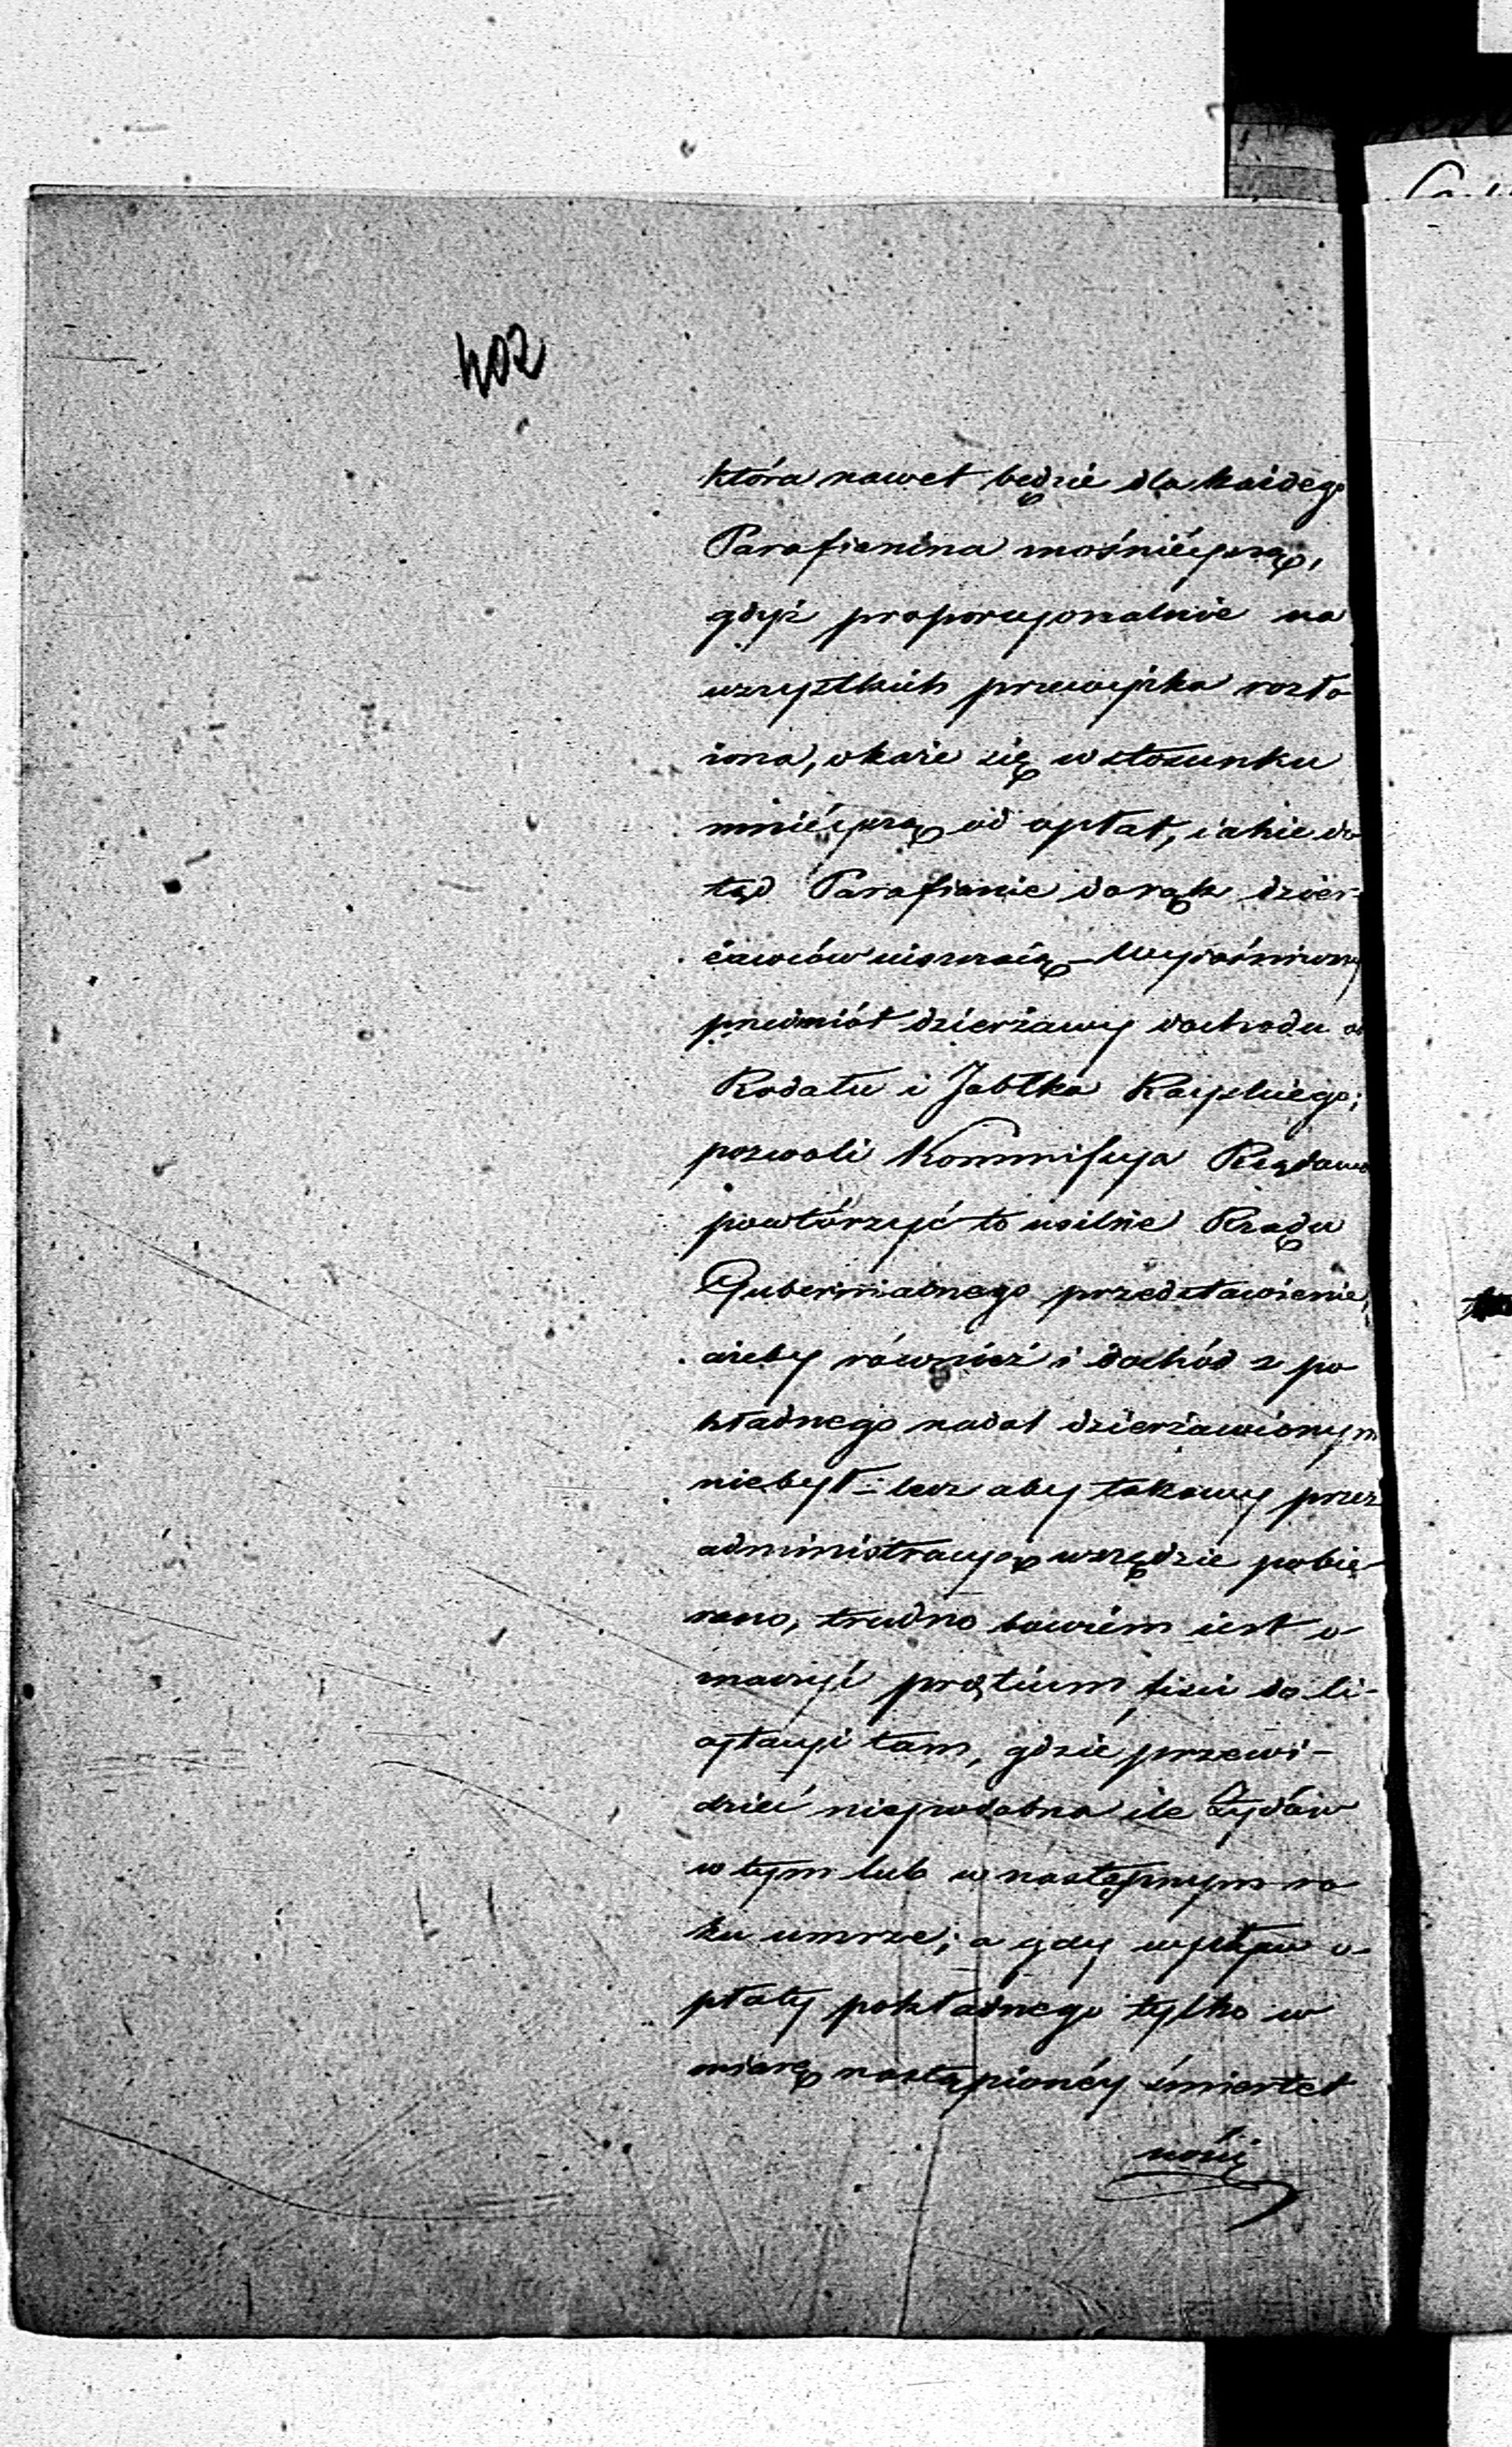 402
która nawet będzie dla każdego
Parafianina znośnieyszą,
gdyż proporcyonalnie na
wszystkich przewyżka rozło
żona, okaże się w stosunku
mnieyszą od opłat, iakie do
tąd Parafianie do rąk dzier-
żawców uiszczaią – Wyiaśniwszy
przedmiot dzierżawy dochodu od
Kodału i Jabłka Rayskiego;
pozwoli Kommissya Rządowa
powtórzyć to usilnie Rządu
Gubernialnego przedstawienie,
ażeby również i dochód z po
kładnego nadal dzierżawionym
niebył – lecz aby takowy przez
administracyą wszędzie pobie-
rano, trudno bowiem iest o-
znaczyć prætium fisci do li-
cytacyi tam, gdzie przewi-
dzieć niepodobna ile Żydów
w tym lub w następnym ro
ku umrze; a gdy wpływ o-
płaty pokładnego tylko w
miarę nastąpionéy śmiertel
ności